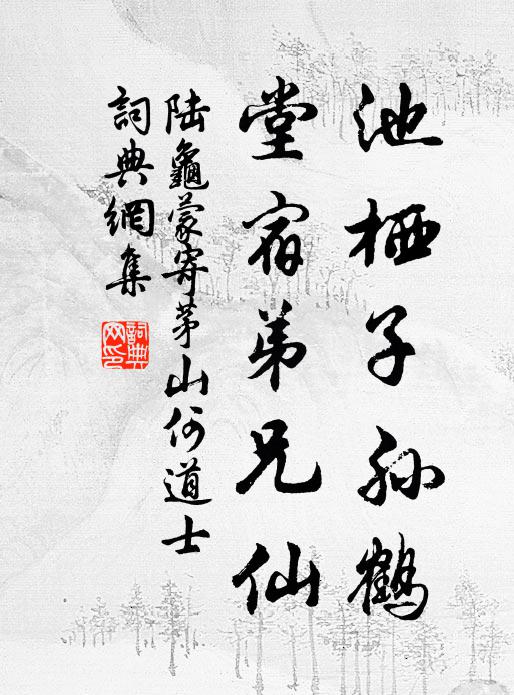 池栖子孙鶴
堂宿弟兄仙
陆龜蒙寄茅山何道士
詞典網集
詞典
网印